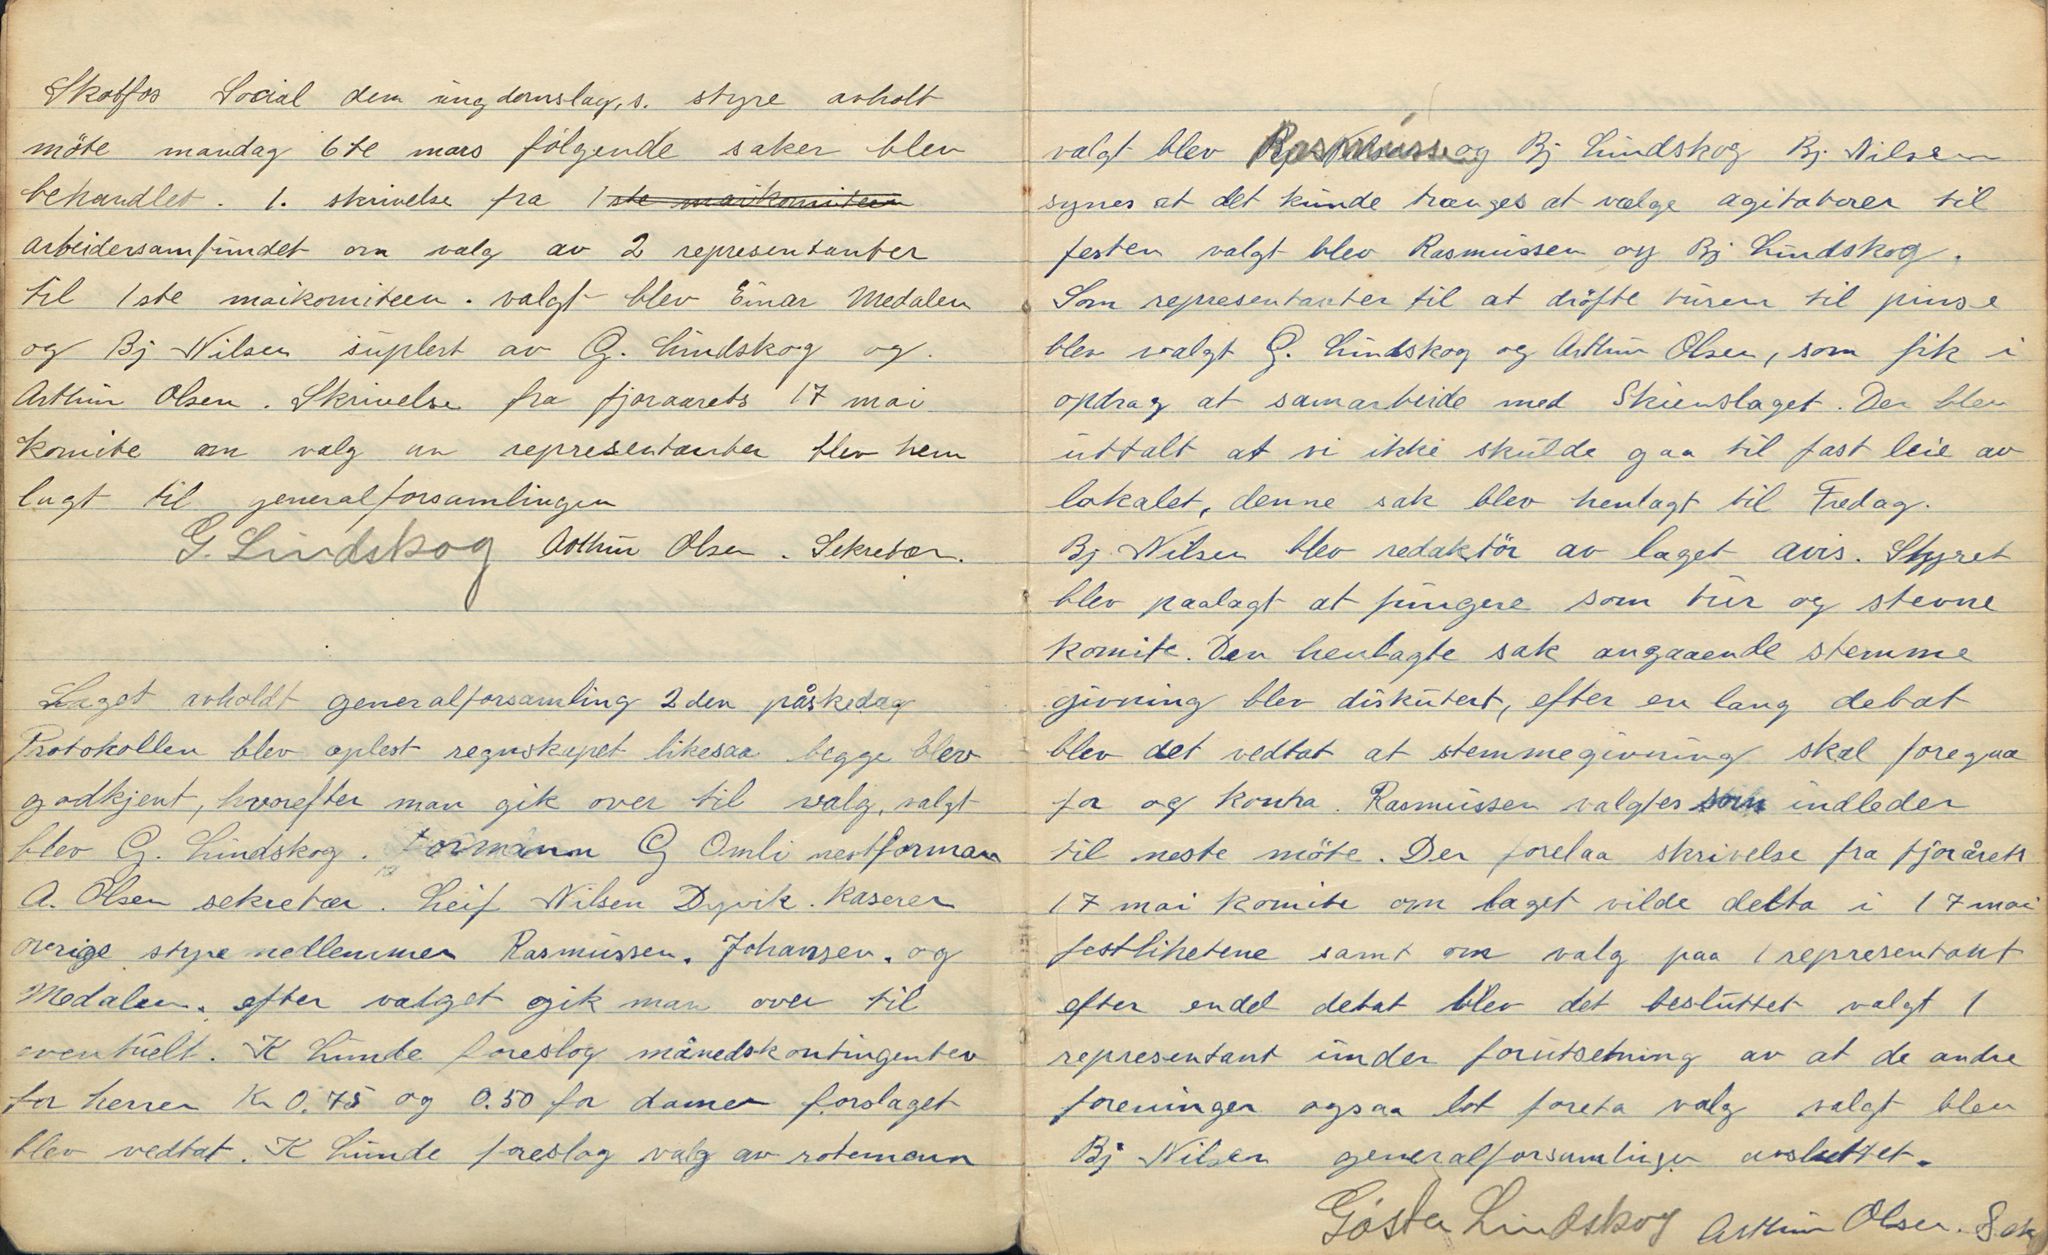 Skotfos Social dem ungdomslag,s. styre avholt
möte mandag 6te mars følgende saker blev
behandlet. 1. skrivelse fra 1ste maikomiteen
arbeidersamfundet om valg av 2 representanter
til 1ste maikomiteen. valgt blev Einar Medalen
og Bj Nilsen suplert av G. Lindskog og.
Arthur Olsen. Skrivelse fra fjoraarets 17 mai
komite om valg av representanter blev hen
lagt til generalforsamlingen
G. Lindskog Arthur Olsen. Sekretær.
Laget avholdt generalforsamling 2den påskedag
Protokollen blev oplest regnskapet likesaa begge blev
godkjent, hvorefter man gik over til valg, valgt
blev G. Lindskog. formann G Omli nestforman
A. Olsen sekretær. Leif Nilsen Dyvik. kaserer
øvrige styremedlemmer Rasmussen. Johansen. og
Medalen. efter valget gik man over til
eventuelt. K Lunde foreslog månedskontingenten
for herrer Kr 0.75 og 0.50 for damer forslaget
blev vedtat. K Lunde foreslog valg av rotemann
valgt blev Rasmussen og Bj Lindskog Bj. Nilsen
synes at det kunde trænges at vælge agitatorer til
festen valgt blev Rasmussen og Bj Lindskog.
Som representanter til at dröfte turen til pinse
blev valgt G. Lindskog og Arthur Olsen, som fik i
opdrag at samarbeide med Skienslaget. Der blev
uttalt at vi ikke skulde gaa til fast leie av
lokalet, denne sak blev henlagt til Fredag.
Bj. Nilsen blev redaktör av laget avis. Styret
blev paalagt at fungere som tur og stevne
komite. Den henlagte sak angaaende stemme
givning blev diskutert, efter en lang debat
blev det vedtat at stemmegivning skal foregaa
for og kontra. Rasmussen valgtes som indleder
til neste möte. Der forelaa skrivelse fra fjorårets
17 mai komite om laget vilde delta i 17 mai
festlihetene samt om valg paa 1 representant
efter endel debat blev det besluttet valgt 1
representant under forutsetning av at de andre
foreninger ogsaa lot foreta valg valgt blev
Bj Nilsen generalforsamlingen avsluttet.
Gösta Lindskog Arthur Olsen. Sek